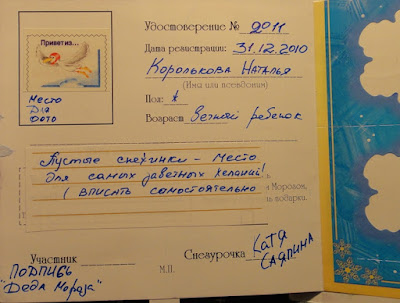 Удостоверение № 2011
Дата регистрации: 31.12.2010
Приветиз...
Королькова Наталья
(Имя или псевдоним)
Место
Для
Фото
Пол: ж
Возраст Вечный ребенок
Пустые снежинки - Место
для самых заветных желаний!
(вписать самостоятельно
Морозом,
подарки.
Участник
Снегурочка Катя
Саяпина
М.П.
Подпись
"Деда Мороза"